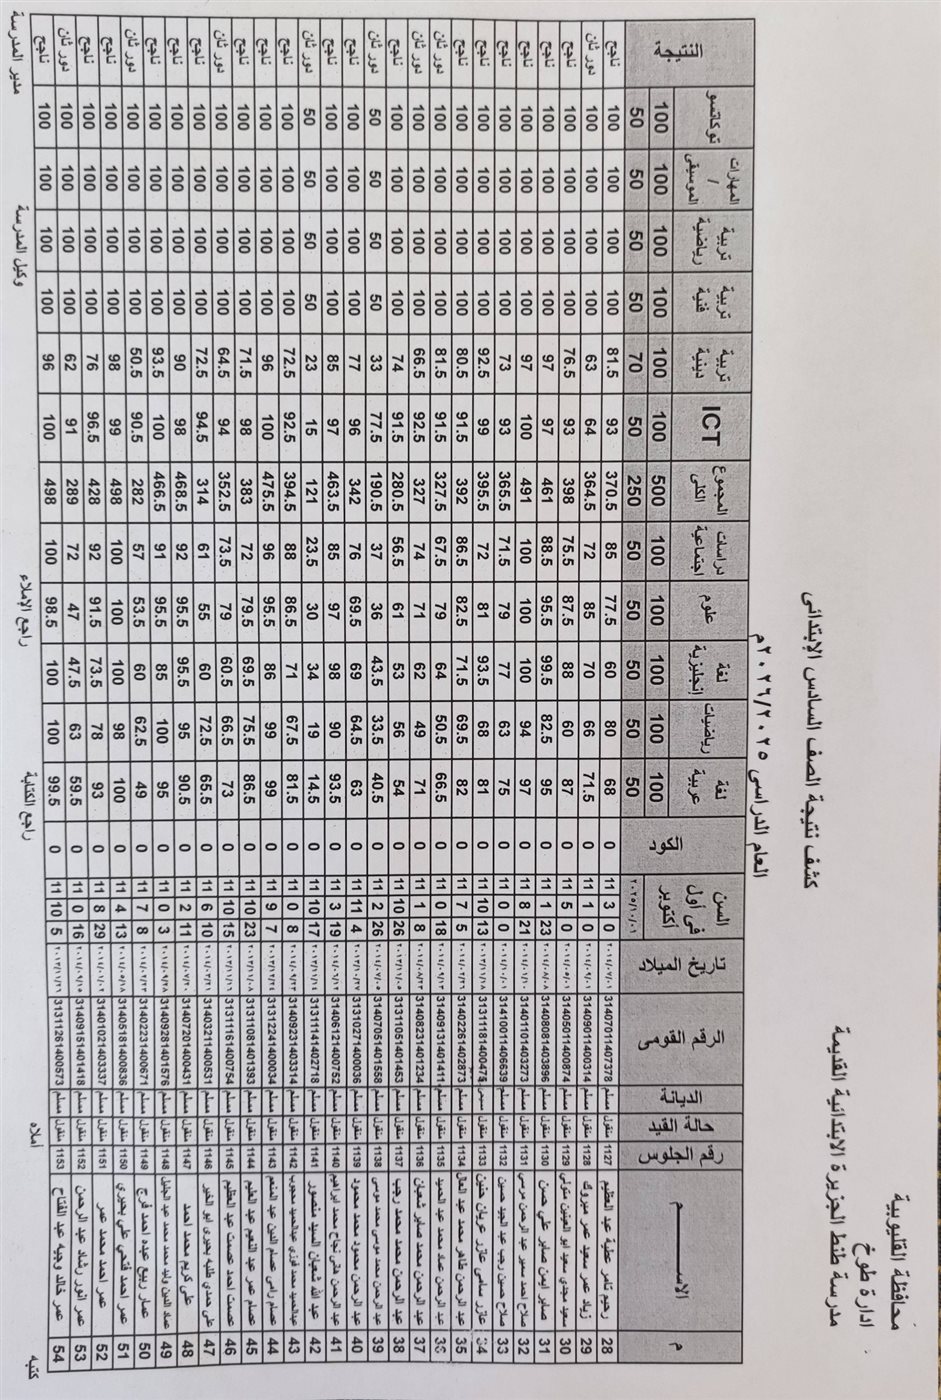 محافظة القليوبية
ادارة طوخ
مدرسة طنط الجزيرة الابتدائية القديمة
كشف نتيجة الصف السادس الإبتدائى
العام الدراسى ٢٠٢٦/٢٠٢٥م
م الاســـــــم رقم الجلوس حالة القيد الديانة الرقم القومى تاريخ الميلاد السن فى أول أكتوبر الكود لغة عربية رياضيات لغة إنجليزية علوم دراسات اجتماعية المجموع الكلى ICT تربية دينية تربية فنية تربية رياضية المهارات / الموسيقى توكاتسو النتيجة
٢٠٢٥/١٠/٠١ 100 100 100 100 100 500 100 100 100 100 100 100
50 50 50 50 50 250 50 70 50 50 50 50
28 رحيم تامر عطية عبد العظيم 1127 منقول مسلم 31407011407378 11 3 0 0 68 80 60 77.5 85 370.5 93 81.5 100 100 100 100 ناجح
29 زياد عمر سعيد عمر مبروك 1128 منقول مسلم 31409011400314 11 1 0 0 71.5 66 70 85 72 364.5 64 63 100 100 100 100 دور ثان
30 سعيد مجدي سعيد ابو العينين متولى 1129 منقول مسلم 31405011400874 11 5 0 0 87 60 88 87.5 75.5 398 93 76.5 100 100 100 100 ناجح
31 صابر ايمن صابر علي حسن 1130 منقول مسلم 31408081403896 11 1 23 0 95 82.5 99.5 95.5 88.5 461 97 97 100 100 100 100 ناجح
32 صلاح احمد سمير عبد الرحمن مرسي 1131 منقول مسلم 31401101403273 11 8 21 0 97 94 100 100 100 491 100 97 100 100 100 100 ناجح
33 صلاح حسين رجب عبد الجيد حسين 1132 منقول مسلم 31410011406639 11 0 0 0 75 63 77 79 71.5 365.5 93 73 100 100 100 100 ناجح
34 عازر سامى عازر عريان حنين 1133 منقول مسيحى 31311181400475 11 10 13 0 81 68 93.5 81 72 395.5 99 92.5 100 100 100 100 ناجح
35 عبد الرحمن طاهر محمد عبد العال 1134 منقول مسلم 31402261402873 11 7 5 0 82 69.5 71.5 82.5 86.5 392 91.5 80.5 100 100 100 100 ناجح
36 عبد الرحمن عماد محمد عبد الحميد 1135 منقول مسلم 31409131401411 11 0 18 0 66.5 50.5 64 79 67.5 327.5 91.5 81.5 100 100 100 100 دور ثان
37 عبد الرحمن محمد صابر شعبان 1136 منقول مسلم 31408231401234 11 1 8 0 71 49 62 71 74 327 92.5 66.5 100 100 100 100 دور ثان
38 عبد الرحمن محمد محمد رجب 1137 منقول مسلم 31311051401453 11 10 26 0 54 56 53 61 56.5 280.5 91.5 74 100 100 100 100 ناجح
39 عبد الرحمن محمد موسى محمد موسى 1138 منقول مسلم 31407051401558 11 2 26 0 40.5 33.5 43.5 36 37 190.5 77.5 33 50 50 50 50 دور ثان
40 عبد الرحمن محمود محمد محمود 1139 منقول مسلم 31310271400036 11 11 4 0 63 64.5 69 69.5 76 342 96 77 100 100 100 100 ناجح
41 عبد الرحمن هانى نجاح محمد ابراهيم 1140 منقول مسلم 31406121400752 11 3 19 0 93.5 90 98 97 85 463.5 97 85 100 100 100 100 ناجح
42 عبد الله شعبان السيد منصور 1141 منقول مسلم 31311141402718 11 10 17 0 14.5 19 34 30 23.5 121 15 23 50 50 50 50 دور ثان
43 عبدالحميد محمد فوزى عبدالحميد محجوب 1142 منقول مسلم 31409231403314 11 0 8 0 81.5 67.5 71 86.5 88 394.5 92.5 72.5 100 100 100 100 ناجح
44 عصام رامى عصام الدين عبد المنعم 1143 منقول مسلم 31312241400034 11 9 7 0 99 99 86 95.5 96 475.5 100 96 100 100 100 100 ناجح
45 عصام عمر عبد النعيم عبد العليم 1144 منقول مسلم 31311081401393 11 10 23 0 86.5 75.5 69.5 79.5 72 383 98 71.5 100 100 100 100 ناجح
46 عصمت احمد عصمت عبد العظيم 1145 منقول مسلم 31311161400754 11 10 15 0 73 66.5 60.5 79 73.5 352.5 94 64.5 100 100 100 100 دور ثان
47 على حمدي طلبه بحيرى ابو الخير 1146 منقول مسلم 31403211400531 11 6 10 0 65.5 72.5 60 55 61 314 94.5 72.5 100 100 100 100 ناجح
48 على كريم محمد احمد 1147 منقول مسلم 31407201400431 11 2 11 0 90.5 95 95.5 95.5 92 468.5 98 90 100 100 100 100 ناجح
49 عماد الدين وليد محمد محمد عبد الجليل 1148 منقول مسلم 31409281401576 11 0 3 0 95 100 85 95.5 91 466.5 100 93.5 100 100 100 100 ناجح
50 عمار ربيع عبده احمد فرج 1149 منقول مسلم 31402231400671 11 7 8 0 49 62.5 60 53.5 57 282 90.5 50.5 100 100 100 100 دور ثان
51 عمر احمد فتحي علي بحيري 1150 منقول مسلم 31405181400836 11 4 13 0 100 98 100 100 100 498 99 98 100 100 100 100 ناجح
52 عمر احمد محمد عمر 1151 منقول مسلم 31401021403337 11 8 29 0 93 78 73.5 91.5 92 428 96.5 76 100 100 100 100 ناجح
53 عمر انور رشاد عبد الرحمن 1152 منقول مسلم 31409151401418 11 0 16 0 59.5 63 47.5 47 72 289 91 62 100 100 100 100 دور ثان
54 عمر خالد وجيه عبد الفتاح 1153 منقول مسلم 31311261400573 11 10 5 0 99.5 100 100 98.5 100 498 100 96 100 100 100 100 ناجح
كتبه أملاه راجع الكتابة راجع الإملاء وكيل المدرسة مدير المدرسة